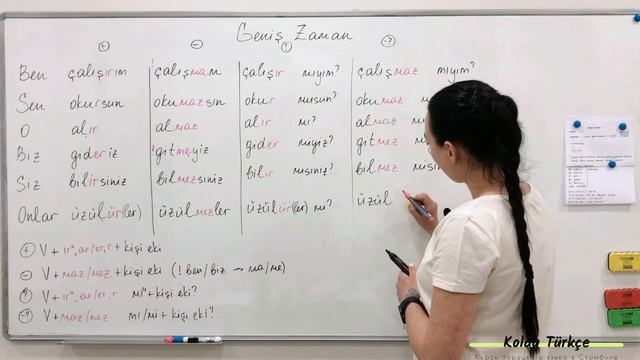 Geniş Zaman
+ - ? -?
Ben çalışırım !çalışmam çalışır mıyım? çalışmaz mıyım?
Sen okursun okumazsın okur musun? okumaz
O alır almaz alır mı? almaz
Biz gideriz !gitmeyiz gider miyiz? gitmez
Siz bilirsiniz bilmezsiniz bilir misiniz? bilmez
Onlar üzülür(ler) üzülmezler üzülür(ler) mi? üzül
+ V + ır⁴, ar/er, r + kişi eki
- V + maz/mez + kişi eki (! ben/biz → ma/me)
? V + ır⁴, ar/er, r mı⁴ + kişi eki?
-? V + maz/mez mı/mi + kişi eki?
Kolay Türkçe
Курсы турецкого языка в Стамбуле